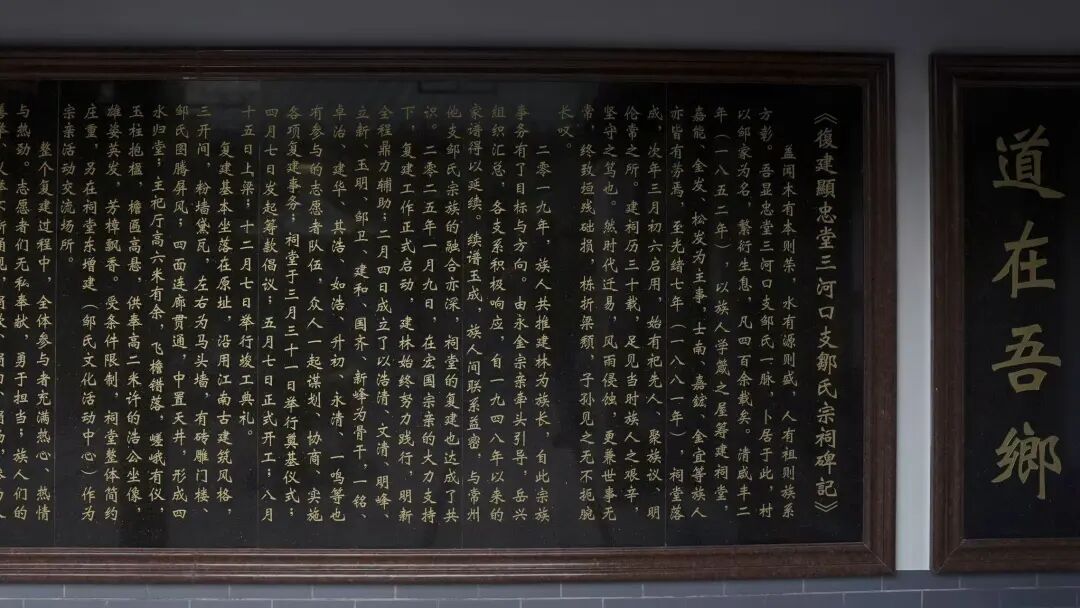 道在吾鄉
《復建顯忠堂三河口支鄒氏宗祠碑記》
蓋闻木有本则荣，水有源则盛，人有祖则族系
方彰。吾显忠堂三河口支邹氏一脉，卜居于此，村
以邹家为名，繁衍生息，凡四百余载矣。清咸丰二
年（一八五二年） 以族人学箴之屋筹建祠堂，
嘉能、金发、松发为主事，士南、嘉 、金宜等族人
亦皆有劳焉，至光绪七年（一八八一年），祠堂落
成，次年三月初六启用，始有祀先人、聚族议、明
伦常之所。建祠历三十载，足见当时族人之艰辛，
坚守之笃也。然时代迁易，风雨侵蚀，更兼世事无
常，终致垣残础损，栋折梁颓，子孙见之无不扼腕
长叹。
二零一九年，族人共推建林为族长，自此宗族
事务有了目标与方向。由永金宗亲牵头引导，岳兴
组织汇总，各支系积极响应，自一九四八年以来的
家谱得以延续。续谱玉成，族人间联系益密，与常州
他支邹氏宗族的融合亦深，祠堂的复建也达成了共
识。二零二五年一月九日，在宏国宗亲的大力支持
下，复建工作正式启动，建林始终努力践行，明新
全程鼎力辅助；二月四日成立了以浩清、文清、明峰、
立新、玉明、邹卫、建和、国齐、新峰为骨干，一铭、
卓治、建华、其浩、如浩、升初、永清、一鸣等也
有参与的志愿者队伍，众人一起谋划、协商、实施
各项复建事务；祠堂于三月三十一日举行奠基仪式；
四月七日发起筹款倡议；五月七日正式开工；八月
十五日上梁；十二月七日举行竣工典礼。
复建基本坐落在原址，沿用江南古建筑风格，
三开间、粉墙黛瓦，左右为马头墙，有砖雕门楼、
邹氏图腾屏风，四面连廊贯通，中置天井，形成四
水归堂；主祀厅高六米有余，飞檐错落，嵯峨有仪，
玉柱抱楹，檐匾高悬，供奉高二米许的浩公坐像，
雄姿英发，芳樟飘香。受条件限制，祠堂整体简约
庄重，另在祠堂东增建（邹氏文化活动中心）作为
宗亲活动交流场所。
整个复建过程中，全体参与者充满热心、热情
与热劲。志愿者们无私奉献，勇于担当；族人们的